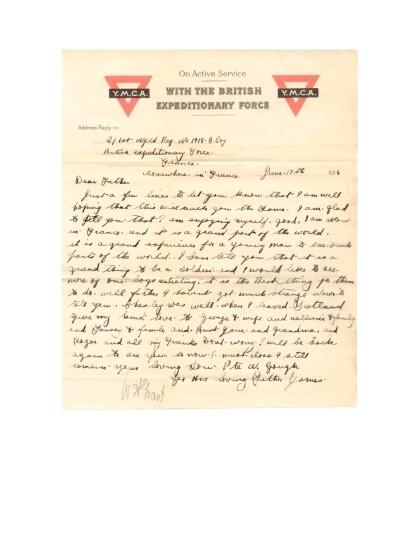 On Active Service
WITH THE BRITISH
EXPEDITIONARY FORCE
Y.M.C.A.
Y.M.C.A.
Address Reply to:
21st Reg. No 1918. B. Coy
British expeditionary Force
France.
Somewhere in France June. 17th 1916
Dear Father
Just a few lines to let you know that I am well
hoping that this will reach you the same. I am glad
to tell you that I am enjoying myself good. I am now
in France and it is a grand part of the world.
it is a grand experience for a young man to see such
parts of the world. I can tell you that it is a
grand thing to be a soldier and I would like to see
more of our boys enlisting, it is the Best thing for them
to do. well father I havent got much strange news to
tell you. was well when I leaved
give my kind love to George & wife and & family
and & family and Aunt Jane and grandma and
Roger and all my friends Dont worry I will be back
again to see you so now I must close I still
remain your loving Son Pte W. Gough
To His loving Father James.